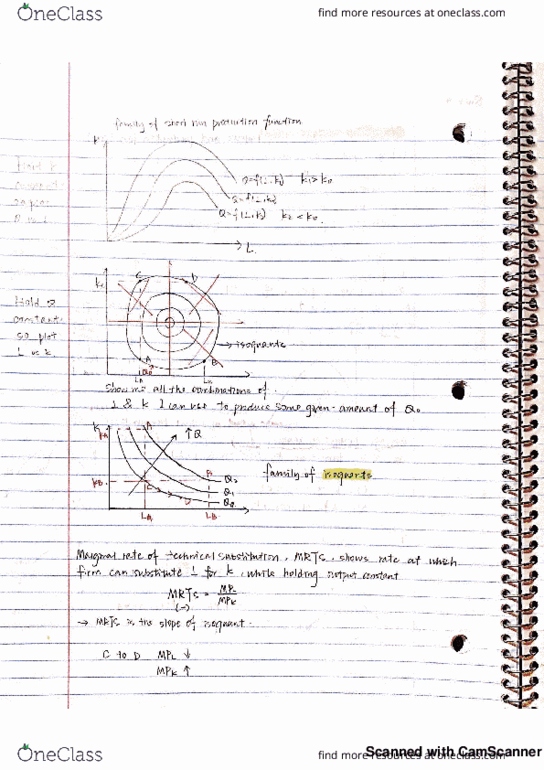 OneClass
find more resources at oneclass.com
family of short run production function
K
Q=f(L,K₁) K₁>K₀
Q=f(L,K₀)
Q=f(L,K₂) K₂<K₀
L
Hold Q
constant
so plot
L vs K
C
D
isoquants
A
B
Show me all the combinations of
L & K I can use to produce some given amount of Q₀
K
A
↑Q
B
Q₂
Q₁
Q₀
C
D
LA
LB
family of isoquants
Marginal rate of technical substitution, MRTS, shows rate at which
firm can substitute L for K, while holding output constant
MRTS = MPL/MPK
(-)
→ MRTS is the slope of isoquant.
C to D MPL ↓
MPK ↑
Scanned with CamScanner
OneClass
find more resources at oneclass.com